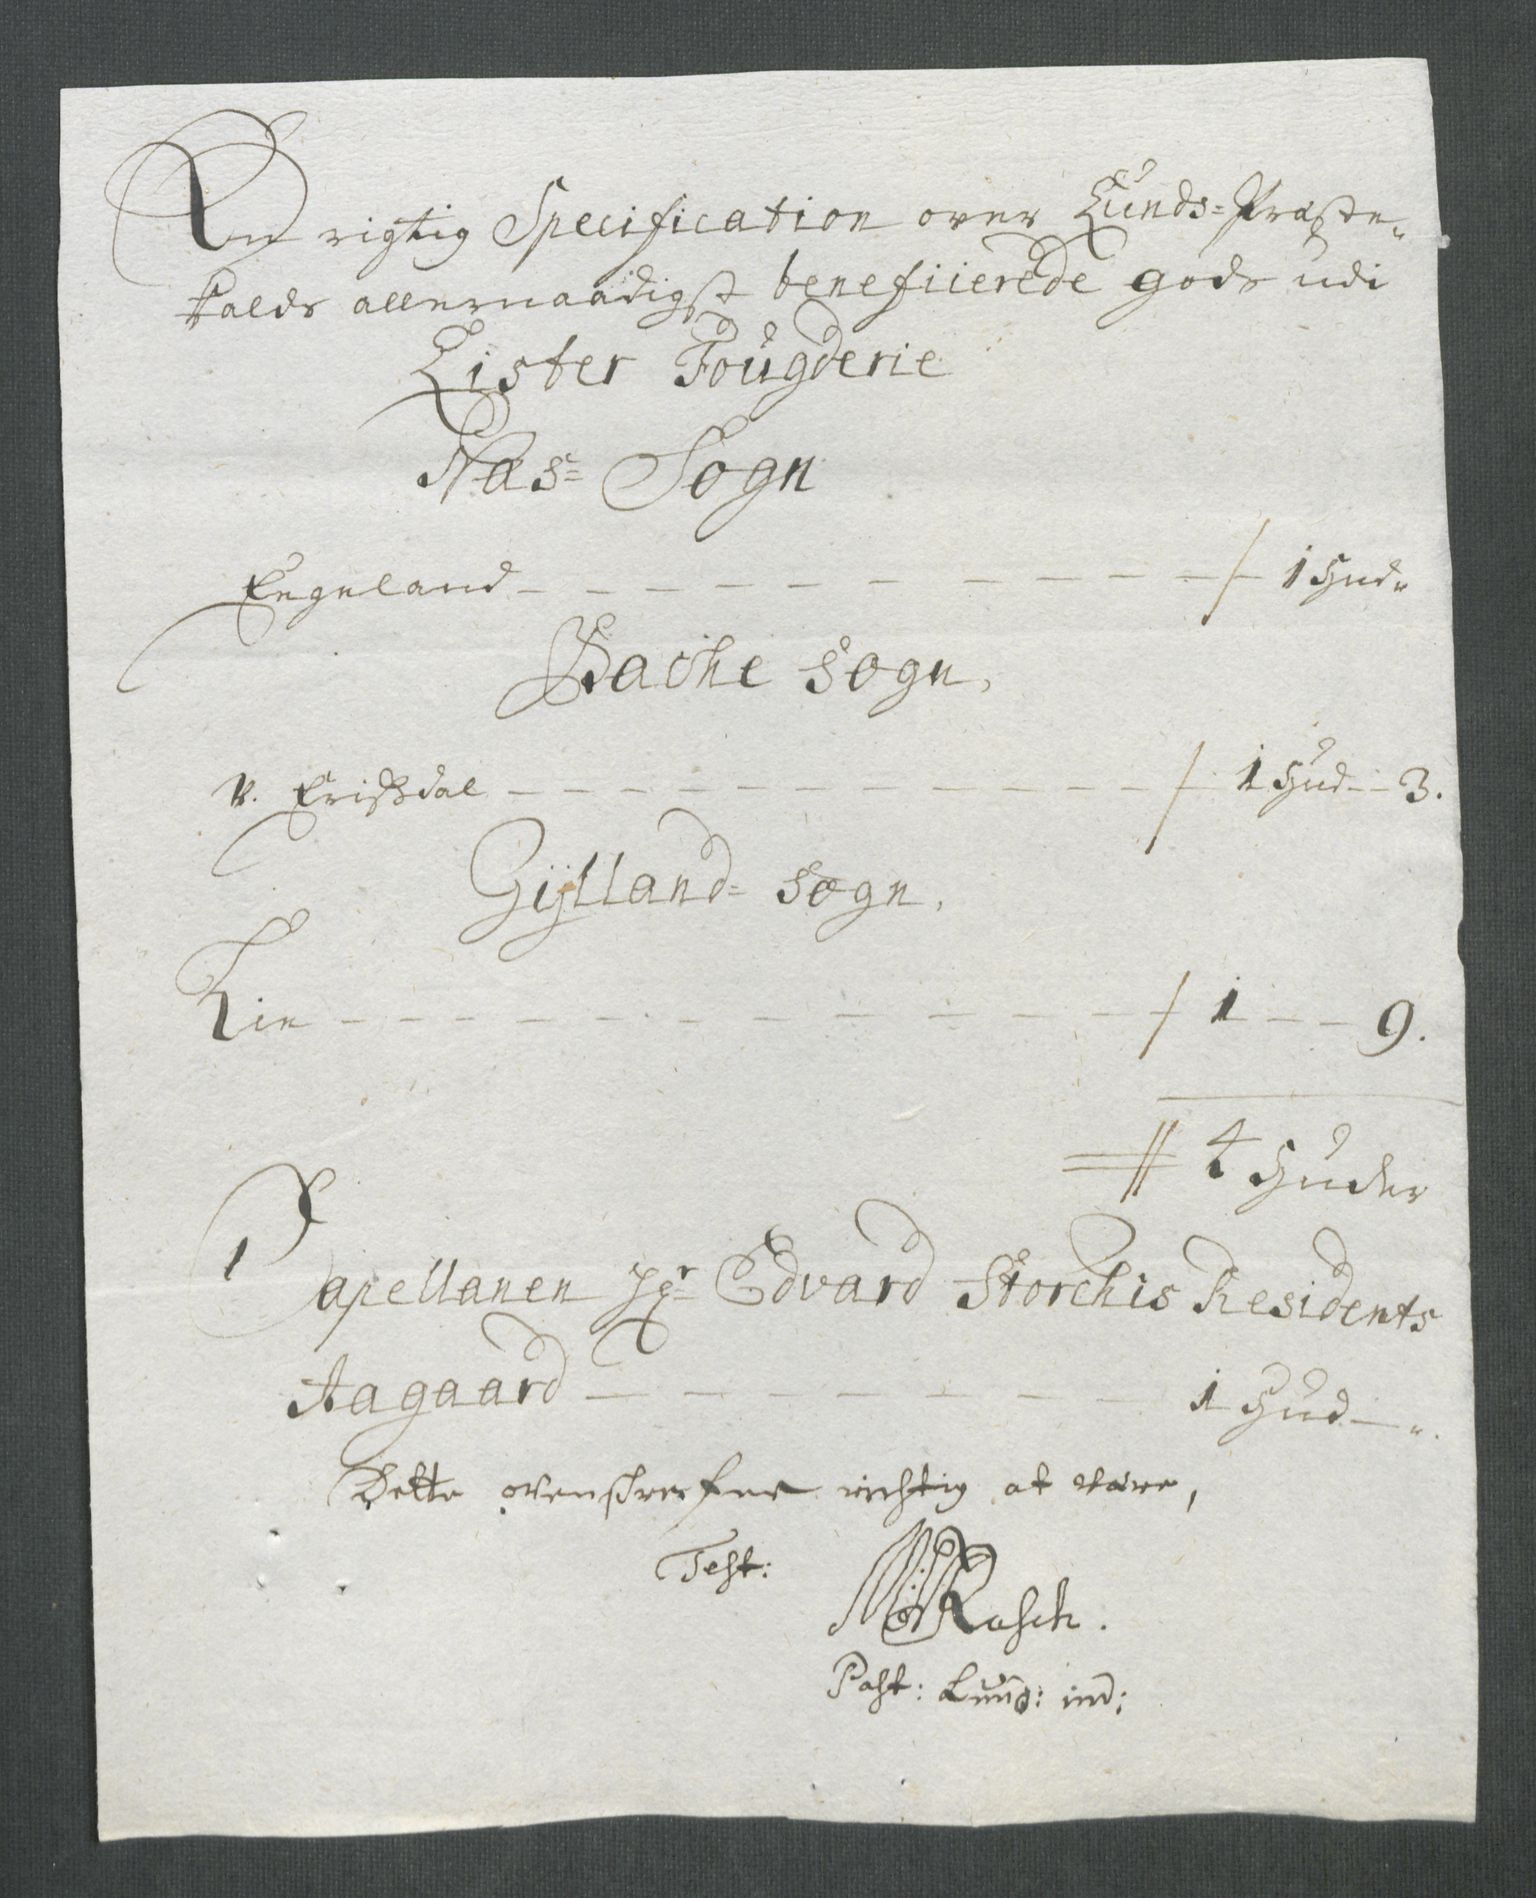 En rigtig Specification over Lunds-Præste-
kalds allernaadigst beneficierede gods udi
Lister Fougderie
Næs- Sogn
Egeland - - - / 1 Hud "
Bache Sogn,
V. Erichsdal - - - / 1 Hud - 3.
Gÿlland- Sogn,
Lin - - - / 1 - - 9.
// 4 Huder
Capellanen Hr Edvard Storchis Residents
Aagaard - - - 1 Hud - ".
Dette ovenskrefne richtig at være,
Test:
Rasch.
Past: Lund: imd: